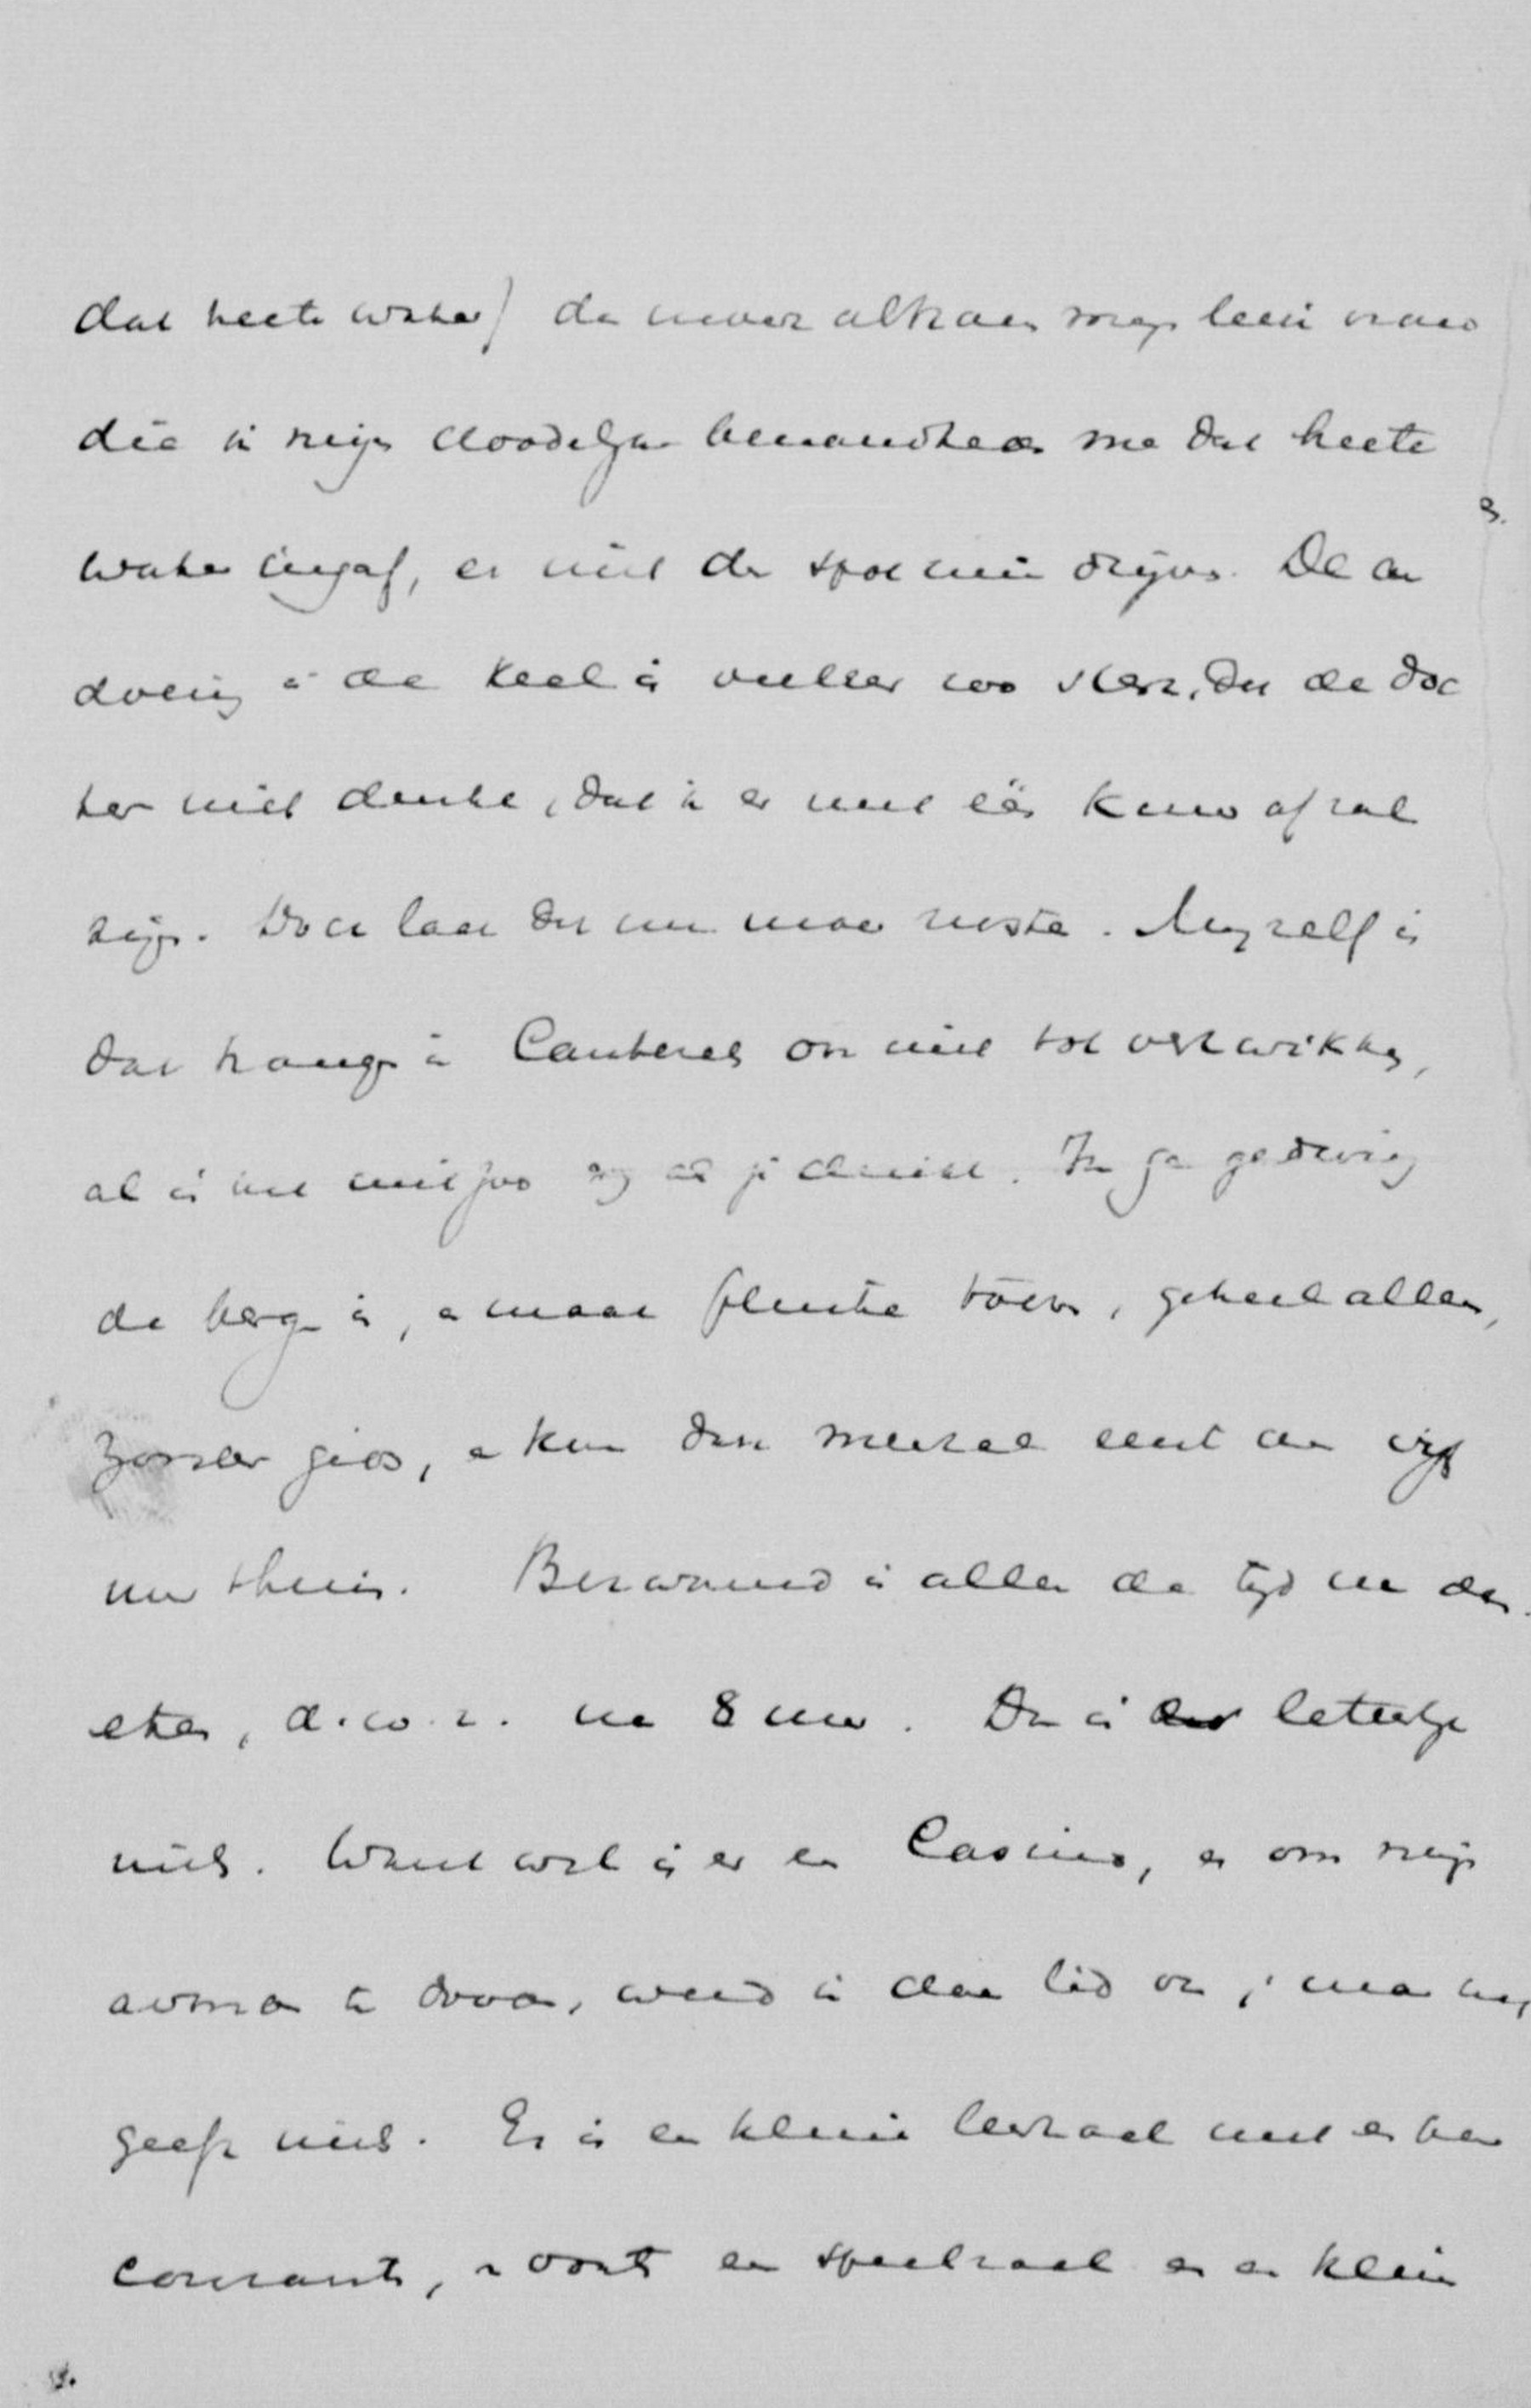 dat heete water) de neus althans
die in mijn doodelijke benauwdheid me dat heete
water ingaf, er niet de spot mee drijven. De aan
doening in de keel is veeleer zoo sterk, dat de doc
ter niet denkt, dat ik er met één kuur af zal
zijn. Doch laat dit nu maar rusten. Mijzelf is
dat hangen in Cauterets ook niet tot verkwikking,
al is het niet zoo erg als je denkt. Ik ga gedurig
de bergen in, en maak flinke toeren, geheel alleen,
zonder gids, en kom dan meestal eerst om vijf
uur thuis. Bezwarend is alleen de tijd na den
eten, d.w.z. na 8 uur. Dan is er letterlijk
niets. Want wel is er een Casino, en om mijn
avond te dooden, werd ik daar lid van, maar het
geeft niets. Er is een kleine leeszaal met een paar
couranten, voorts een speelzaal en een klein
3.